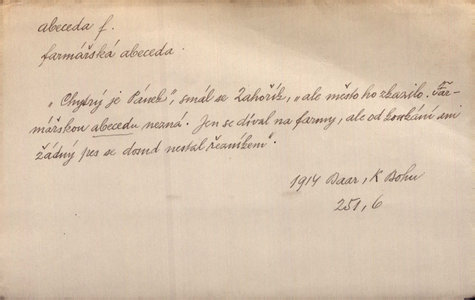 abeceda f.
farmářská abeceda.
„Chytrý je Pánek", smál se Zahořík, „ale město ho zkazilo. Far-
mářskou abecedu nezná. Jen se díval na farmy, ale od koukání ani
žádný pes se dosud nestal řezníkem".
1914 Baar, K Bohu
251, 6